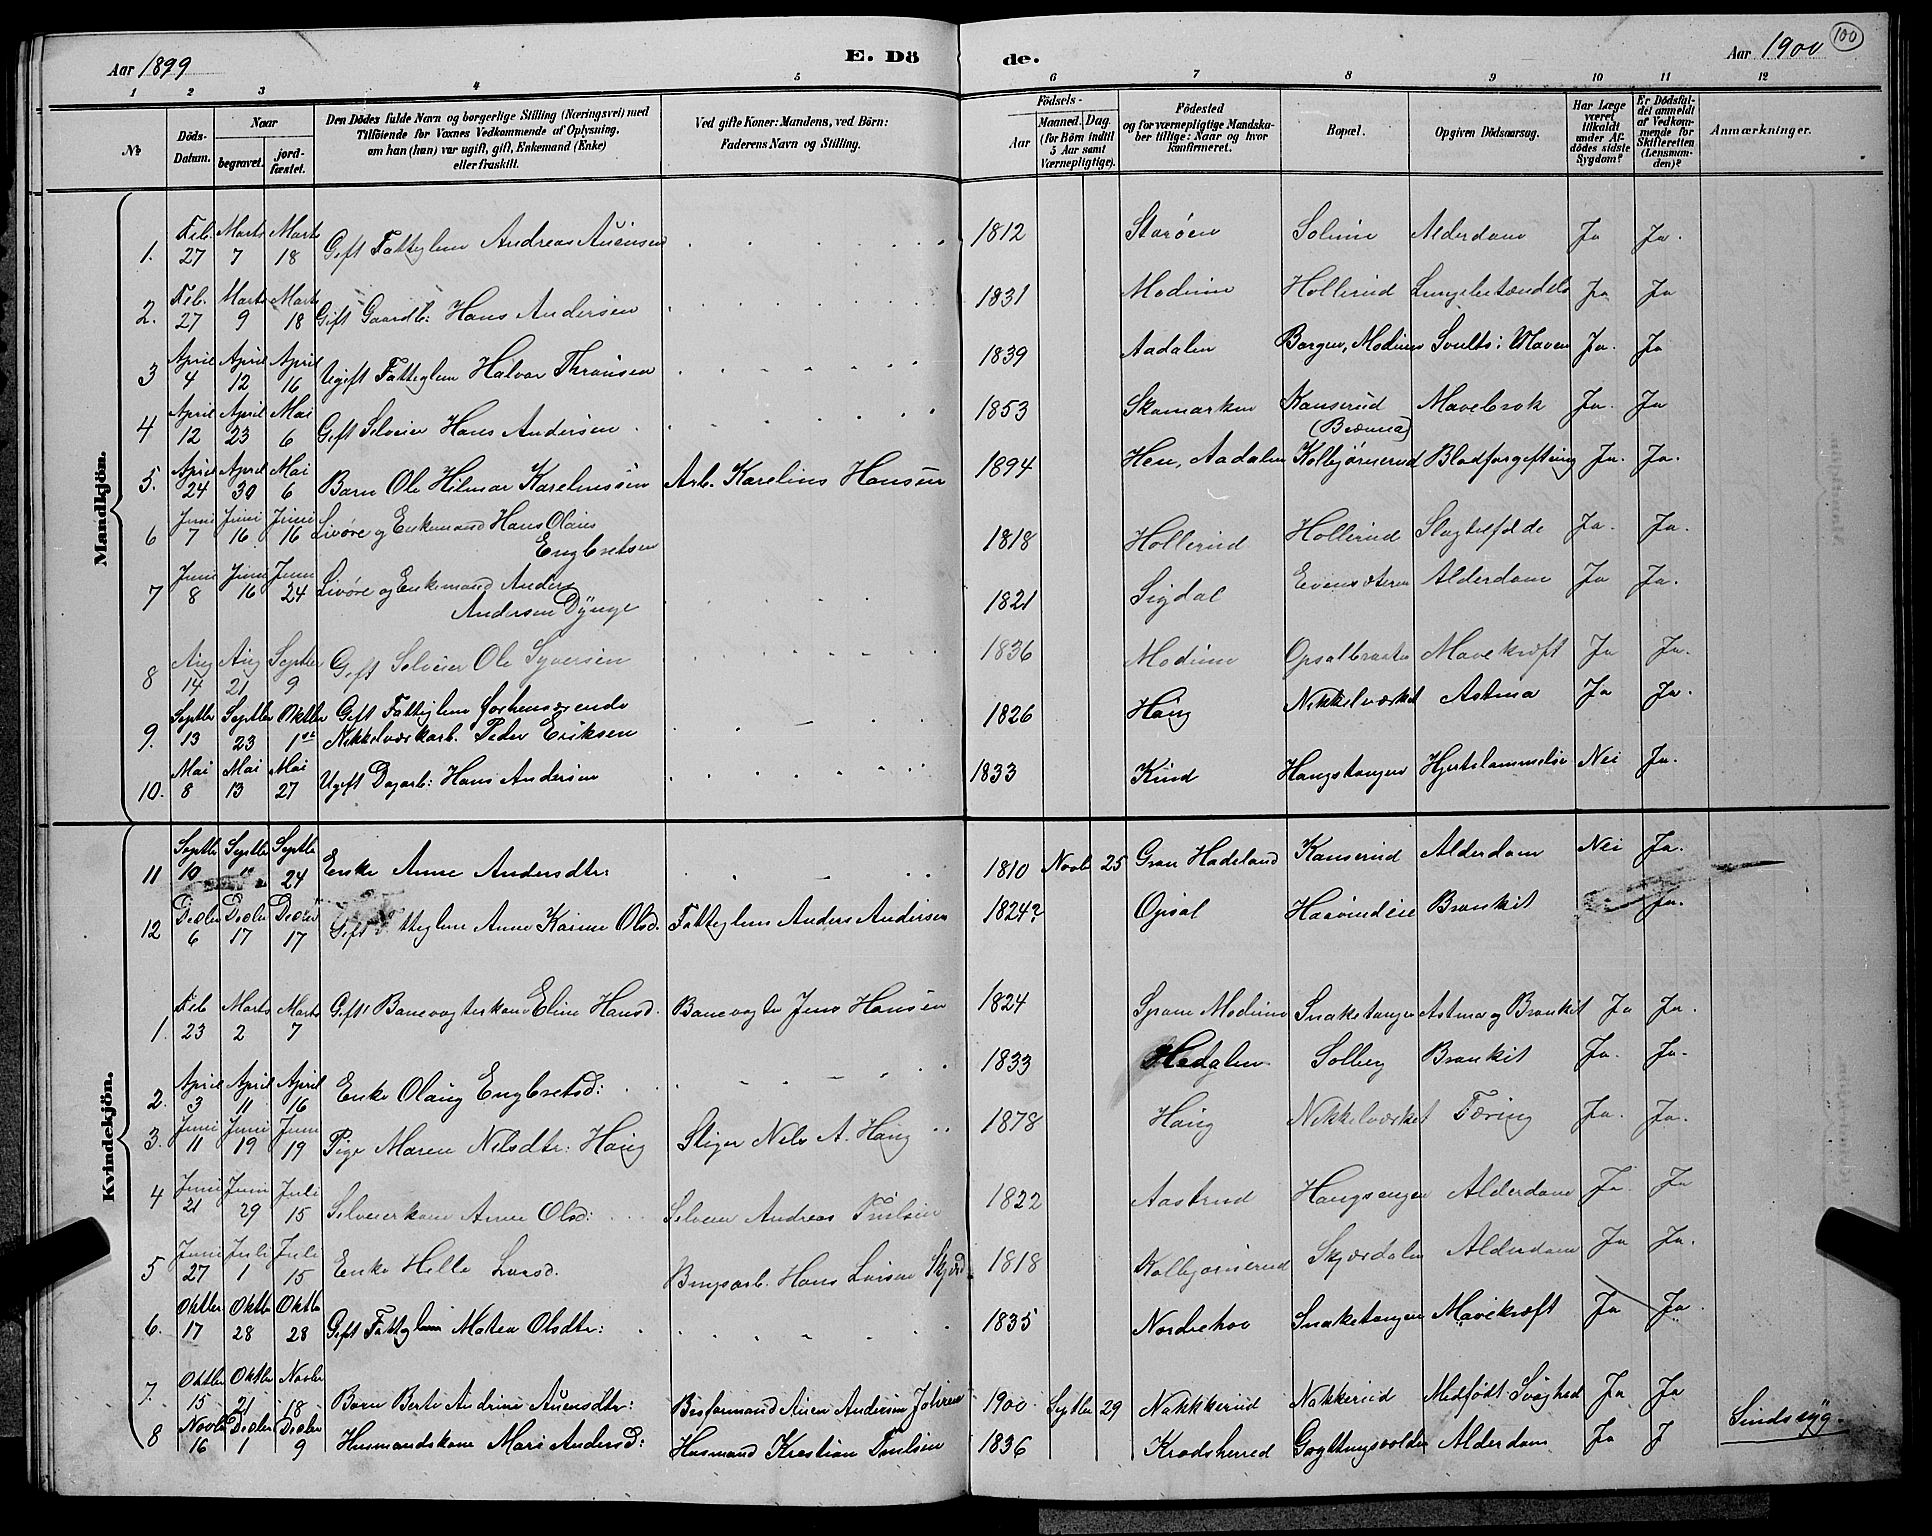 Aar 1899
E. Dö
de.
Aar 1900
100
1 2 3 4 5 6 7 8 9 10 11 12
№
Döds-Datum.
Naar
begravet.
jord-fæstet.
Den Dödes fulde Navn og borgerlige Stilling (Næringsvei) med
Tilföiende for Voxnes Vedkommende af Oplysning,
om han (hun) var ugift, gift, Enkemand (Enke)
eller fraskilt.
Ved gifte Koner: Mandens, ved Börn:
Faderens Navn og Stilling.
Födsels-
Aar
Maaned. Dag.
(for Börn indtil
5 Aar samt
Værnepligtige).
Födested
og for værnepligtige Mandska-
ber tillige: Naar og hvor
konfirmeret.
Bopæl.
Opgiven Dödsaarsag.
Har Læge
været
tilkaldt
under Af-
dödes sidste
Sygdom?
Er Dödsfal-
det anmeldt
af Vedkom-
mende for
Skifteretten
(Lensman-
den)?
Anmærkninger.
Mandkjön.
1. Feb. 27 Marts 7 Marts 18 Gift Fattiglem Andreas Auensen 1812 Starøen Solum Alderdom Ja Ja.
2. Feb. 27 Marts 9 Marts 18 Gift Gaardb: Hans Andersen 1831 Modum Hollerud Ja Ja
3 April 4 April 12 April 16 Ugift Fattiglem Halvor Thronsen 1839 Aadalen Borgen, Modum Svulst i Maven Ja. Ja
4 April 12 April 23 Mai 6 Gift Selveier Hans Andersen 1853 Skamarken Kanserud Mavebrok Ja. Ja
5. April 24 April 30 Mai 6 Barn Ole Hilmar Karelinssen Arb. Karelius Hansen 1894 Hen, Aadalen Kolbjørnerud Blodforgiftning Ja. Ja.
6 Juni 7 Juni 16 Juni 16 Livøre og Enkemand Hans Olaus
Engbretsen 1818 Hollerud Hollerud Slagtilfælde Ja. Ja.
7 Juni 8 Juni 16 Juni 24 Livøre og Enkemand Anders
Andersen Dynge 1821 Sigdal Evensæteren Alderdom Ja Ja.
8 Aug 14 Aug 21 Septbr 9 Gift Selveier Ole Syversen 1836 Modum Opsalbraaten Mavekræft Ja Ja.
9. Septbr 13 Septbr 23 Oktbr 1ste Gift Fattiglem forhenværende
Nikkelværkarb. Peder Eriksen 1826 Haug Nikkelværket Astma Ja Ja.
10. Mai 8 Mai 13 Mai 27 Ugift Dagarb: Hans Andersen 1833 Haugstangen Hjertelammelse Nei Ja.
11 Septbr 10 Septbr " Septbr 24 Enke Anne Andersdtr: 1810 Novbr 25 Gran Hadeland Kanserud Alderdom Nei Ja.
12 Decbr 6 Decbr 17 Decbr 17 Gift Fattiglem Anne Karine Olsd. Fattiglem Anders Andersen 1824? Opsal Bronkit Ja.
Kvindekjön.
1. Feb 23 Marts 2 Marts 7 Gift Banevogterkone Eline Hansd. Banevogter Jens Hansen 1824 Modum Snaketangen Astma og Bronkit Ja Ja.
2. April 3 April 11 April 16 Enke Olaug Engbretsd: 1833 Hedalen Solberg Bronkit Ja. Ja.
3. Juni 11 Juni 19 Juni 19 Pige Maren Nilsdtr: Haug Stiger Nels A. Haug 1878 Haug Nikkelværket Tæring Ja. Ja.
4 Juni 21 Juni 29 Juli 15 Selveierkone Anne Olsd: Selveier Andreas Truelsen 1822 Aastrud Alderdom Ja. Ja
5 Juni 27 Juli 1 Juli 15 Enke Helle Larsd. Brugsarb. Hans Larsen 1818 Kolbjørnerud Skjærdalen Alderdom Ja Ja.
6. Oktbr 17 Oktbr 28 Oktbr 28 Gift Fattiglem Matea Olsdtr: 1835 Norderhov Snaketangen Mavekræft Ja Ja.
7. Oktbr 15 Oktbr 21 Novbr 18 Barn Berte Andrine Auensdtr: Auen Andersen 1900 Septbr 29 Nakkerud Nakkerud Medfødt Svaghed Ja Ja
8 Novbr 16 Decbr 1 Decbr 9 Husmandskone Mari Andersd: Husmand Kristian Truelsen 1836 Krødsherred Alderdom Ja J Sindssyg.